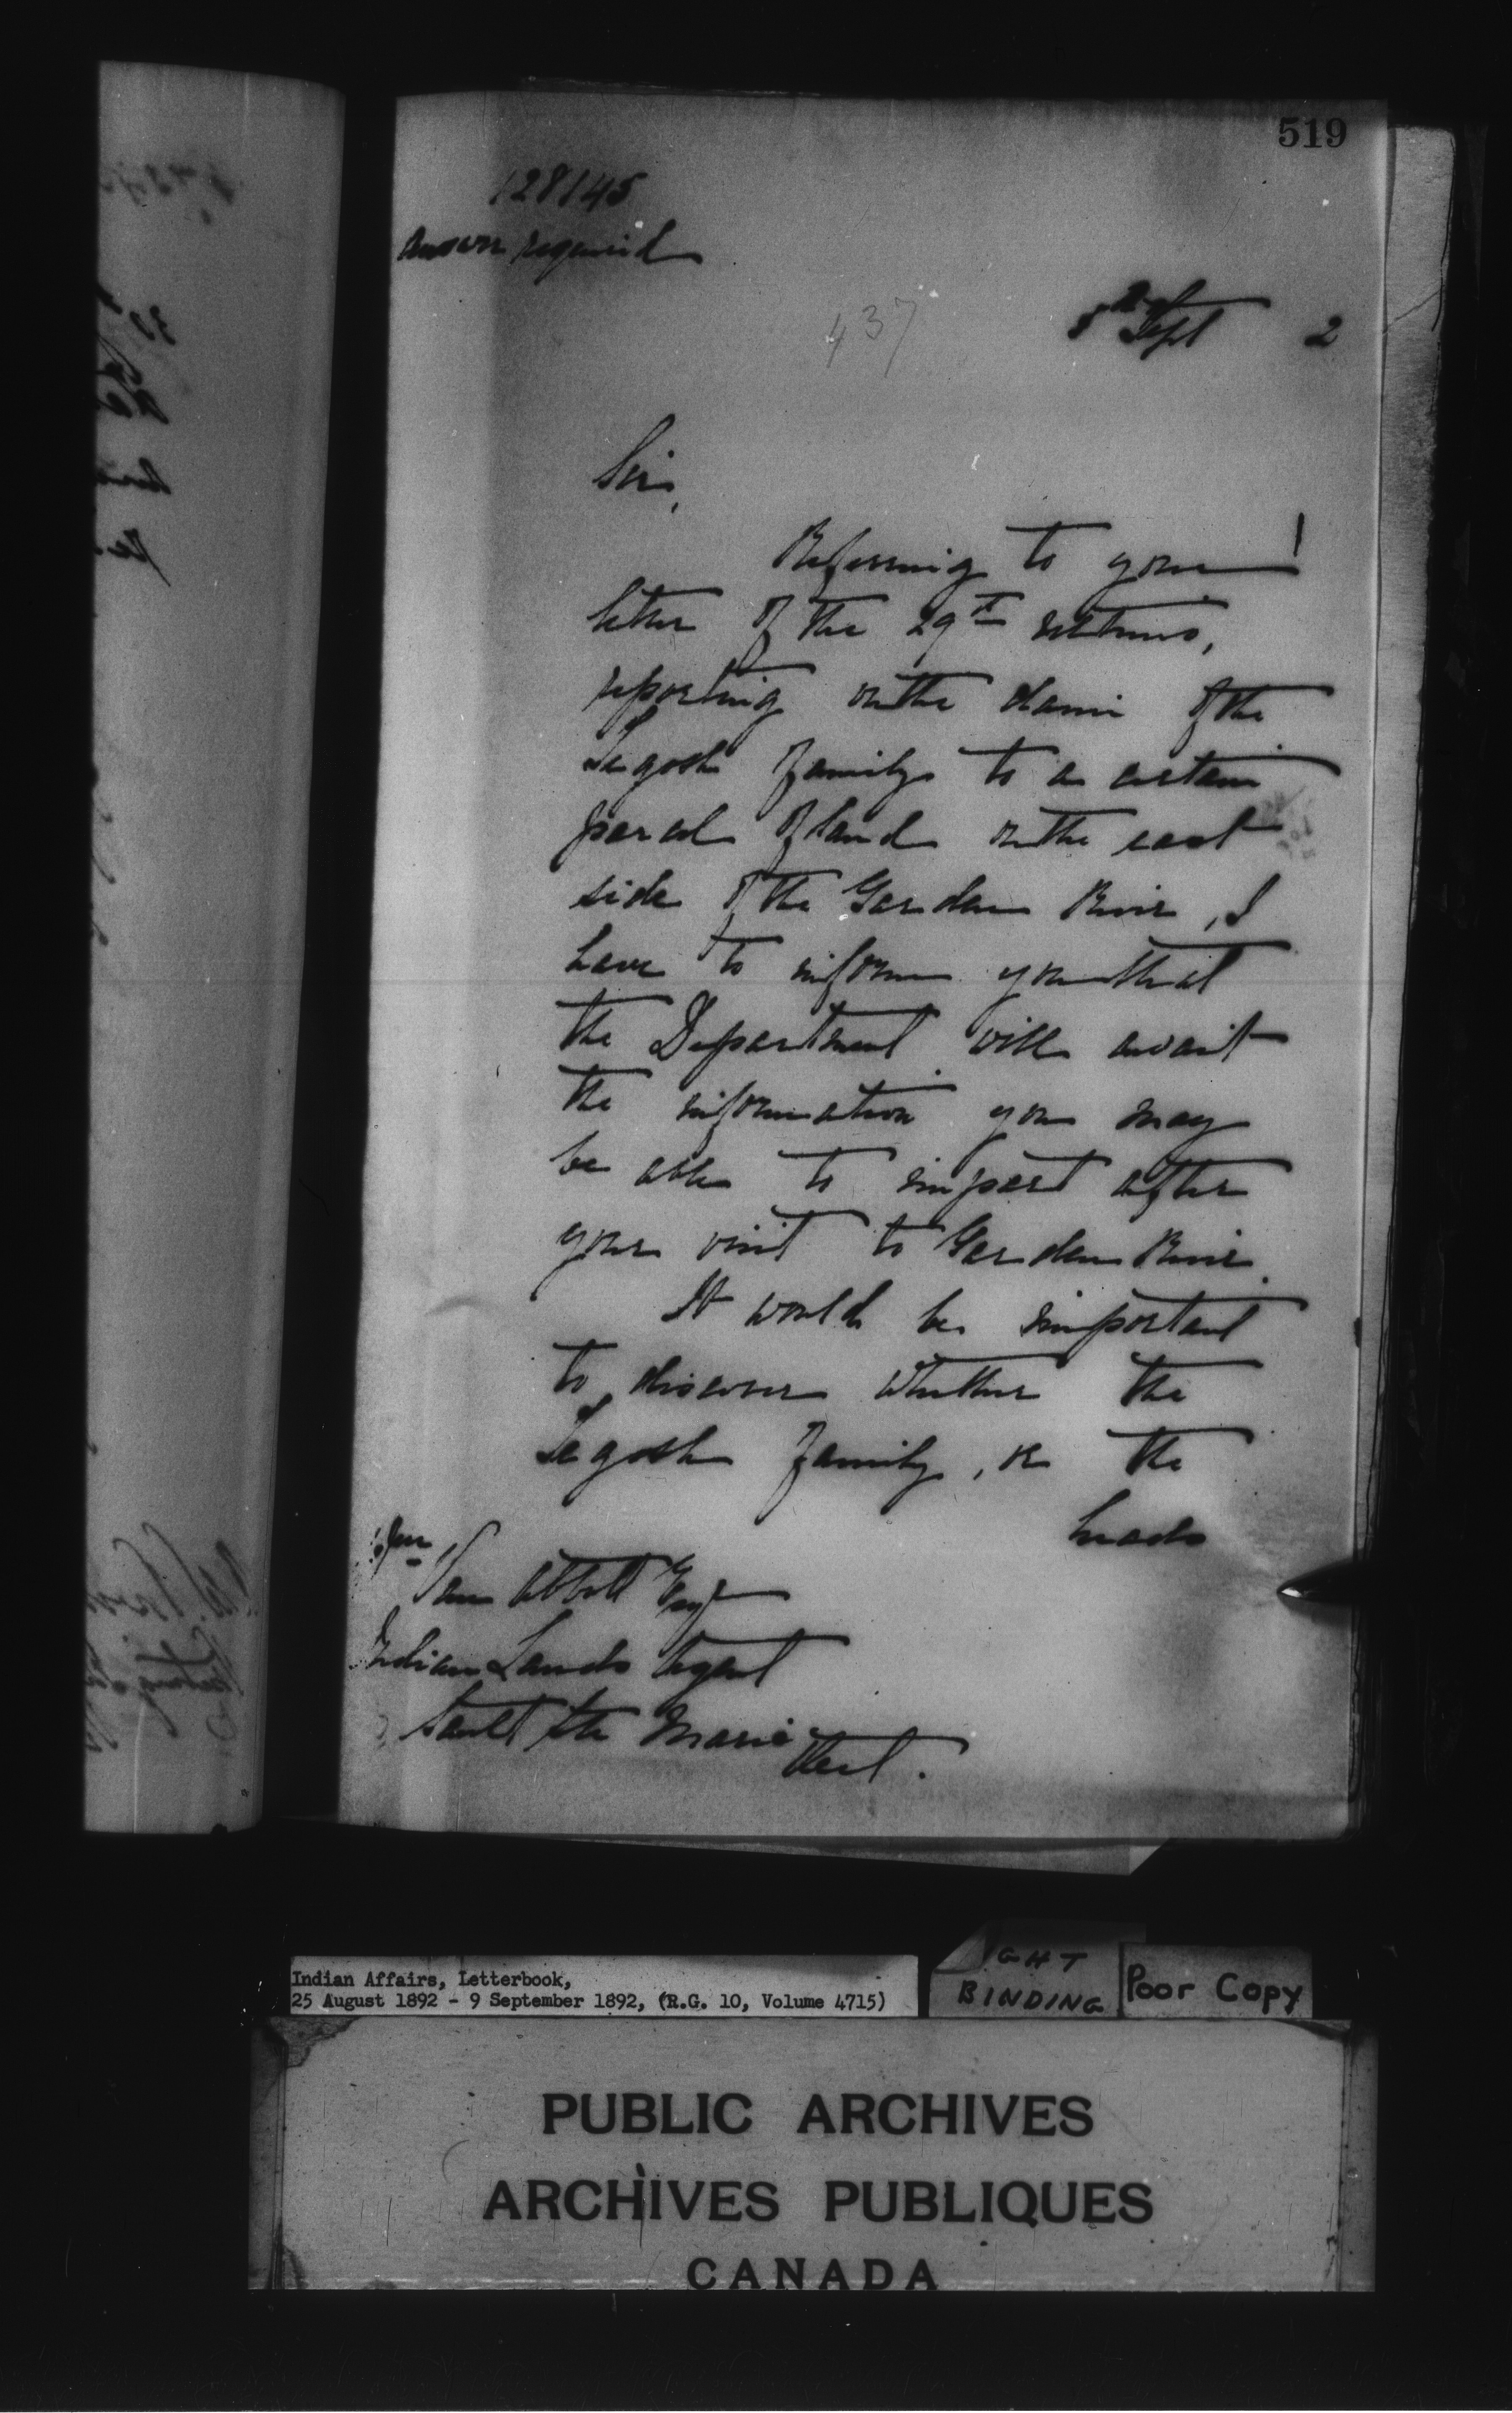 519
128145
Answer required
437
8th Sept 2
Sir,
Referring to your
letter of the 29th ultimo,
reporting on the claim of the
Segosh family to a certain
parcel of land on the east
side of the Garden River, I
have to inform you that
the Department will await
the information you may
be able to impart after
your visit to Garden River.
It would be important
to discover whether the
Segosh family, or the
heads
Wm Van Abbott Esqr
Indian Lands Agent
Sault Ste Marie
Ont.
Indian Affairs, Letterbook,
25 August 1892 - 9 September 1892, (R.G. 10, Volume 4715)
BINDING
Poor Copy
PUBLIC ARCHIVES
ARCHIVES PUBLIQUES
CANADA